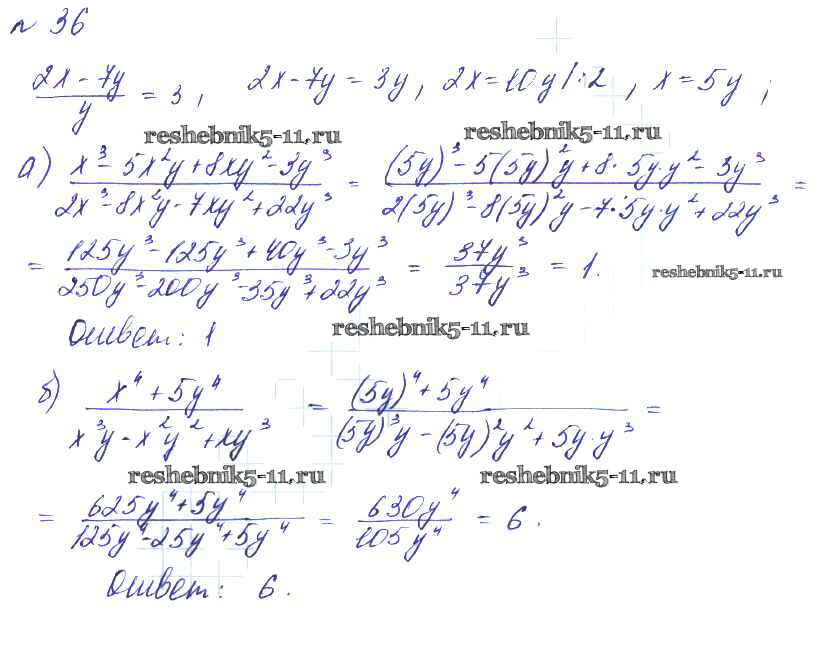 № 36
(2x - 7y)/y = 3, 2x - 7y = 3y, 2x = 10y | :2, x = 5y;
reshebnik5-11.ru reshebnik5-11.ru
а) (x³ - 5x²y + 8xy² - 3y³)/(2x³ - 8x²y - 7xy² + 22y³) = ((5y)³ - 5(5y)²y + 8·5y·y² - 3y³)/(2(5y)³ - 8(5y)²y - 7·5y·y² + 22y³) =
= (125y³ - 125y³ + 40y³ - 3y³)/(250y³ - 200y³ - 35y³ + 22y³) = 37y³/37y³ = 1. reshebnik5-11.ru
Ответ: 1 reshebnik5-11.ru
б) (x⁴ + 5y⁴)/(x³y - x²y² + xy³) = ((5y)⁴ + 5y⁴)/((5y)³y - (5y)²y² + 5y·y³) =
reshebnik5-11.ru reshebnik5-11.ru
= (625y⁴ + 5y⁴)/(125y⁴ - 25y⁴ + 5y⁴) = 630y⁴/105y⁴ = 6.
Ответ: 6.